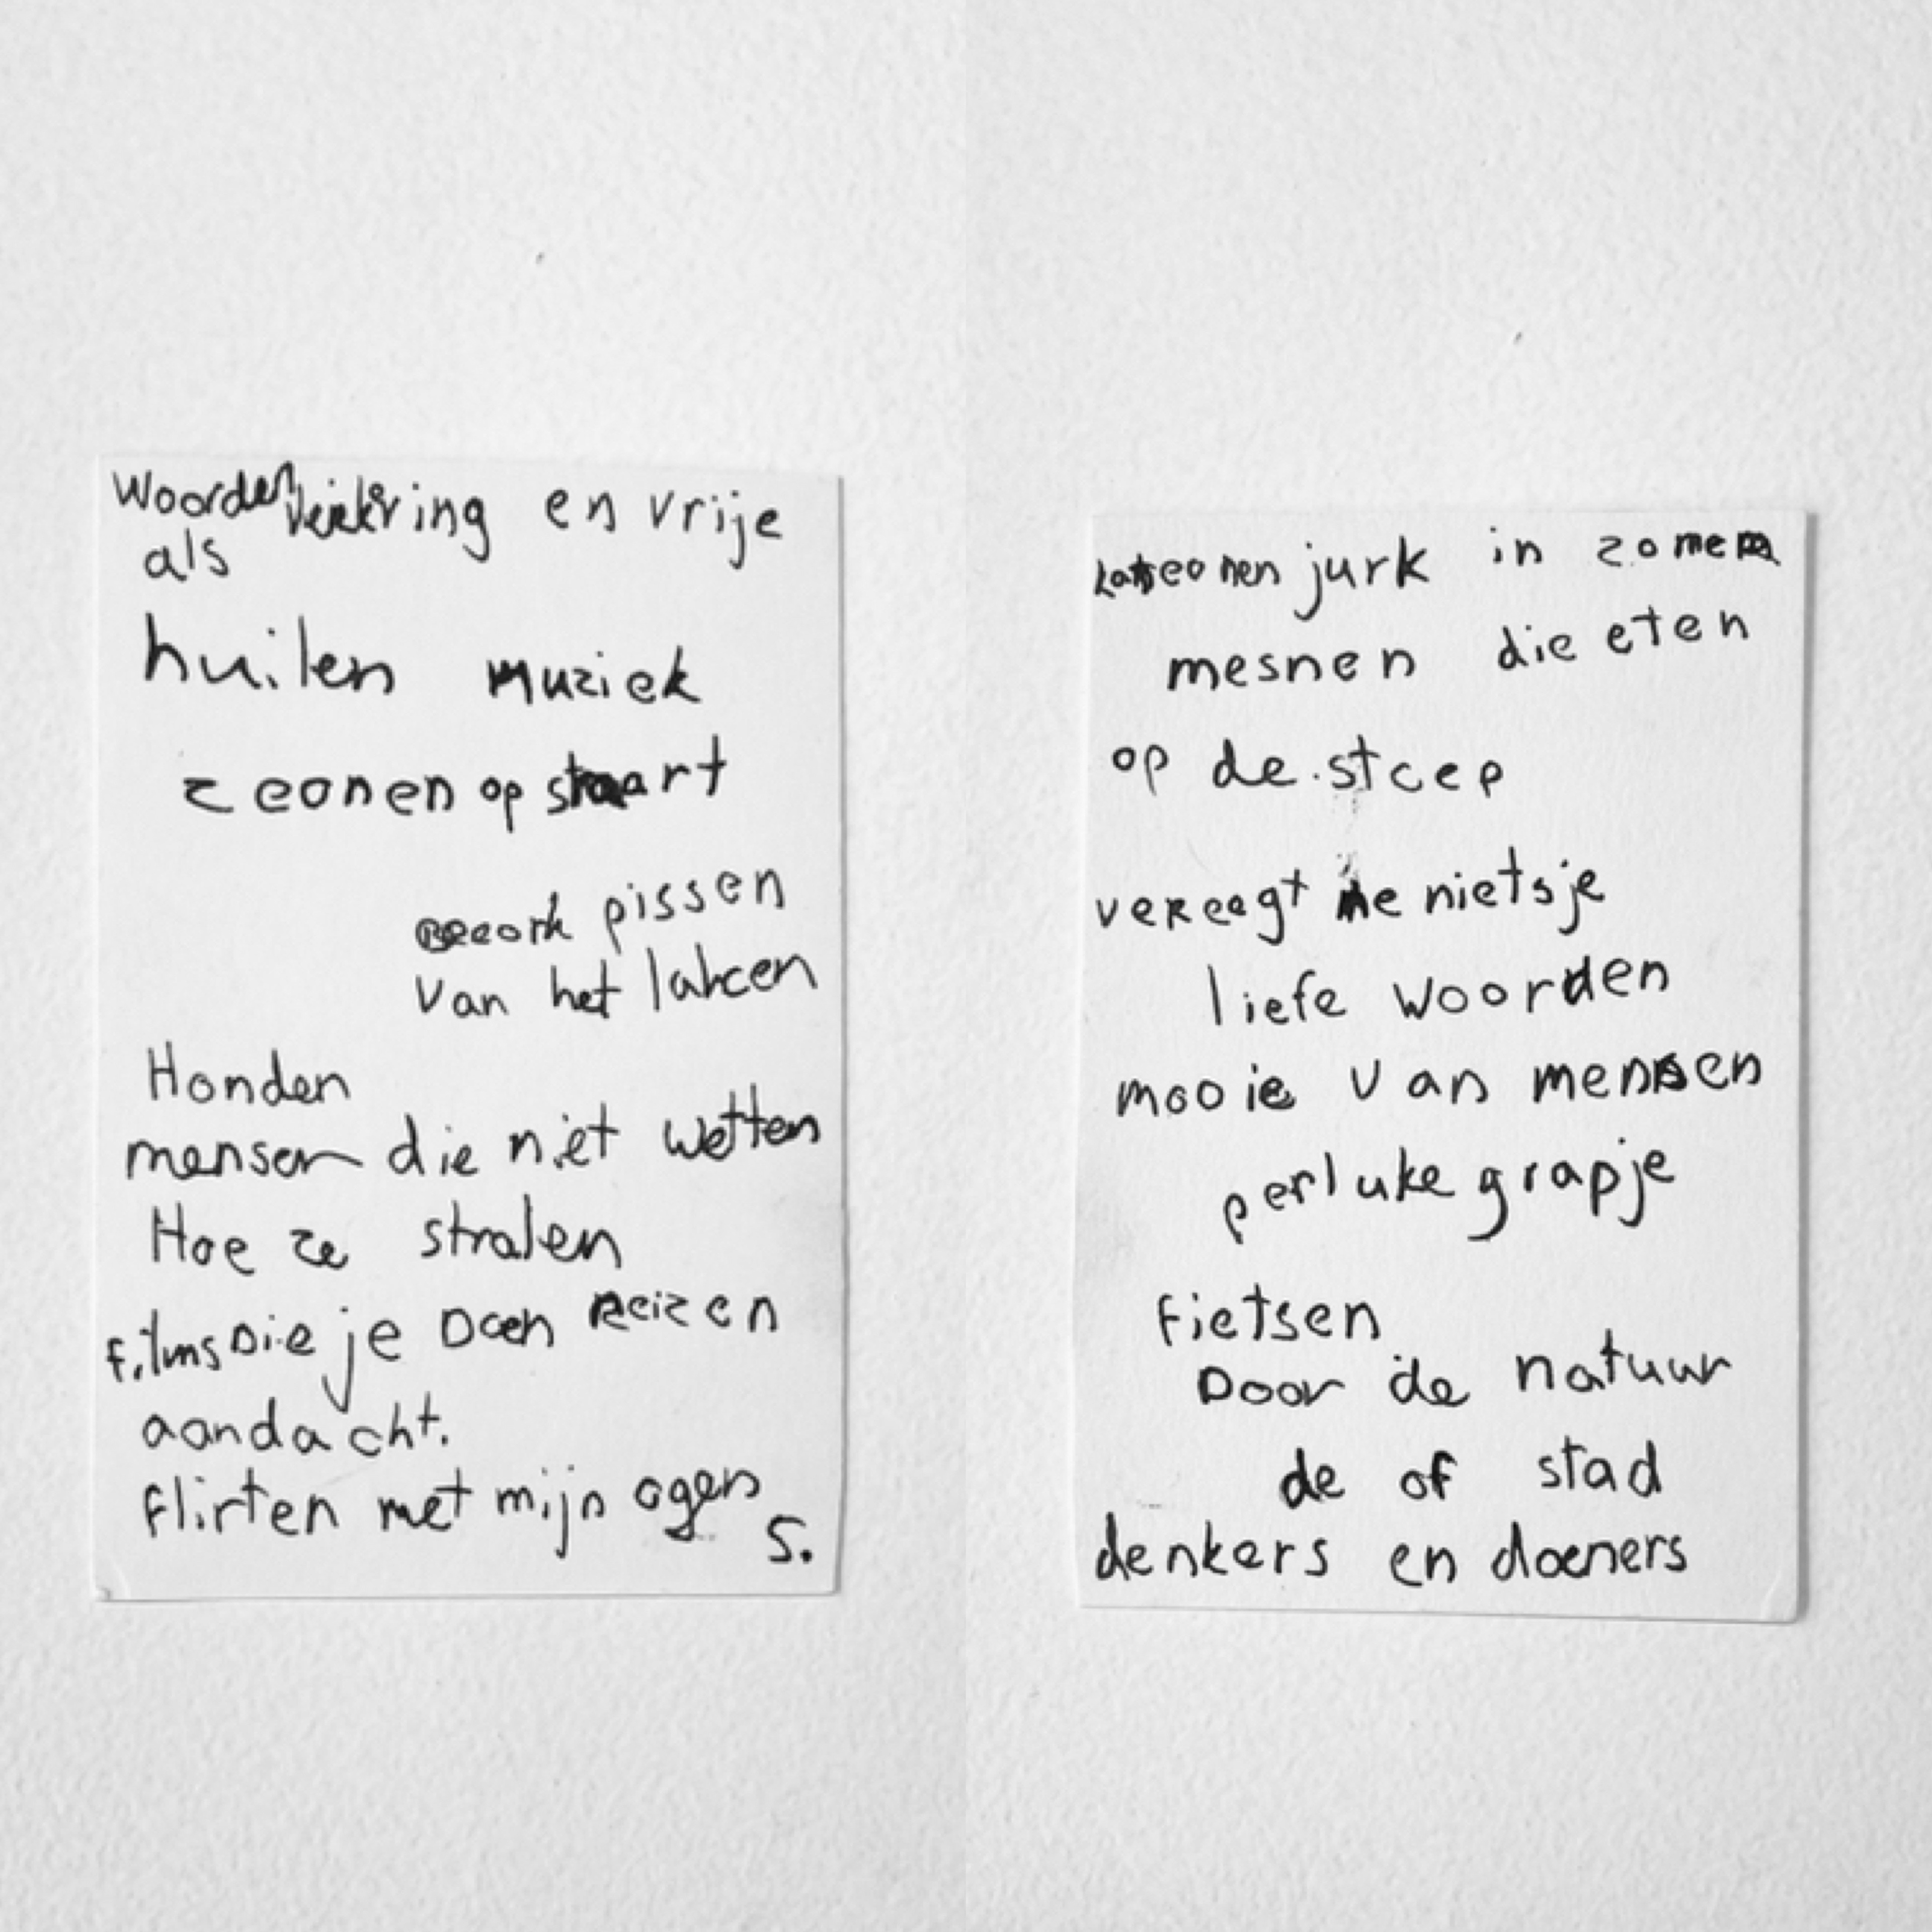 Woorden en vrije
als
huilen muziek
zeonen op
pissen
van het
Honden
mensen die niet wetten
Hoe ze stralen
films Die je Doen Reizen
aandacht.
flirten met mijn ogen
S.
jurk in zomer
mesnen die eten
op de stoep
nietsje
liefe woorden
mooie van mensen
perluke grapje
fietsen
Door de natuur
de of stad
denkers en doeners